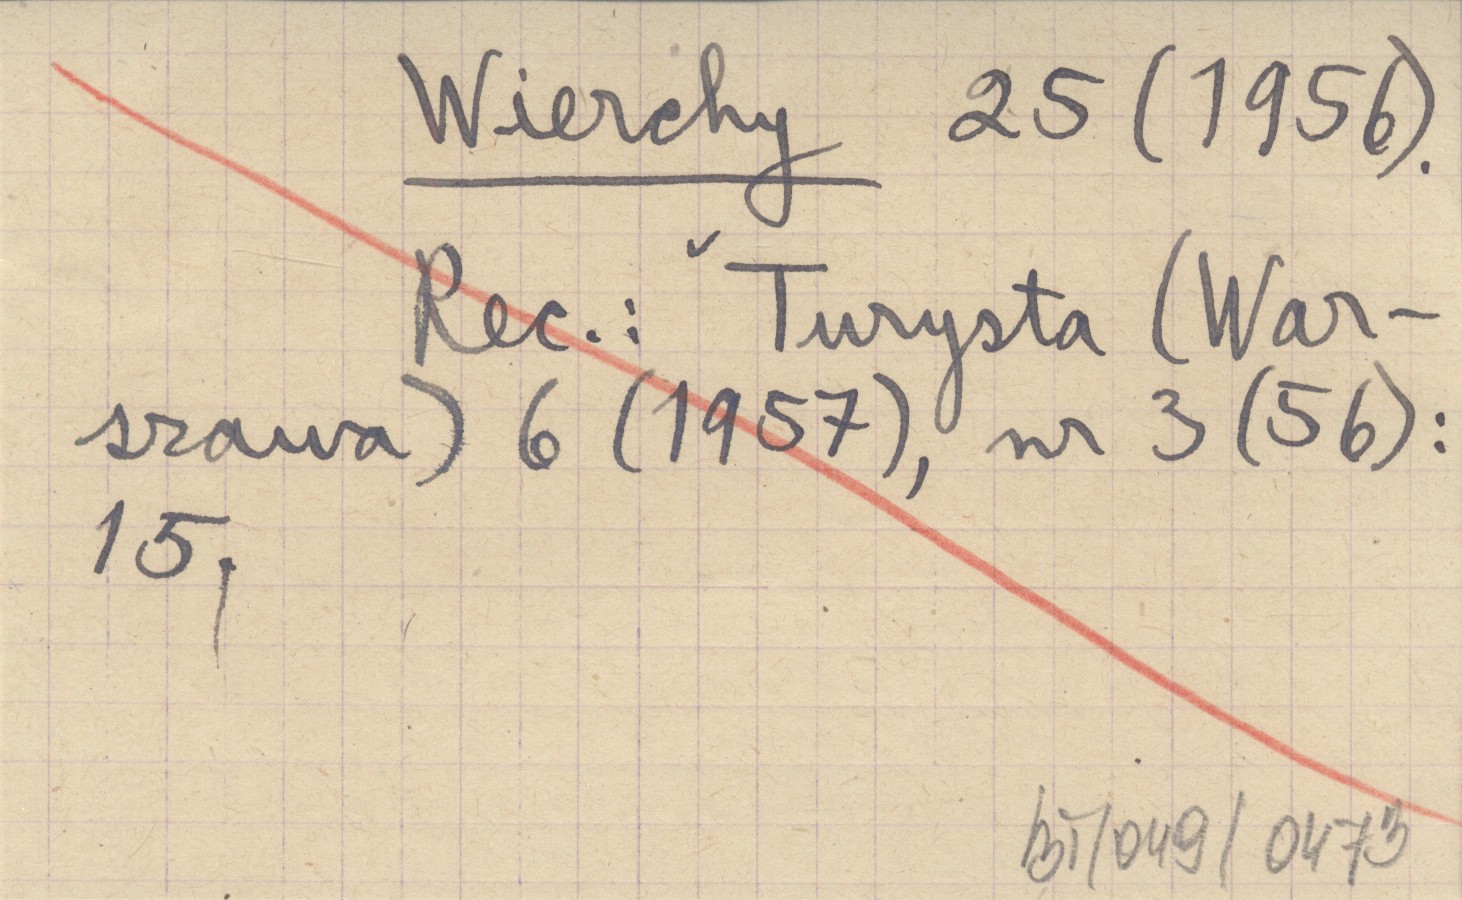 Wierchy 25 (1956).
Rec.: ˇTurysta (War-
szawa) 6 (1957), nr 3 (56):
15,
bT/049/0473